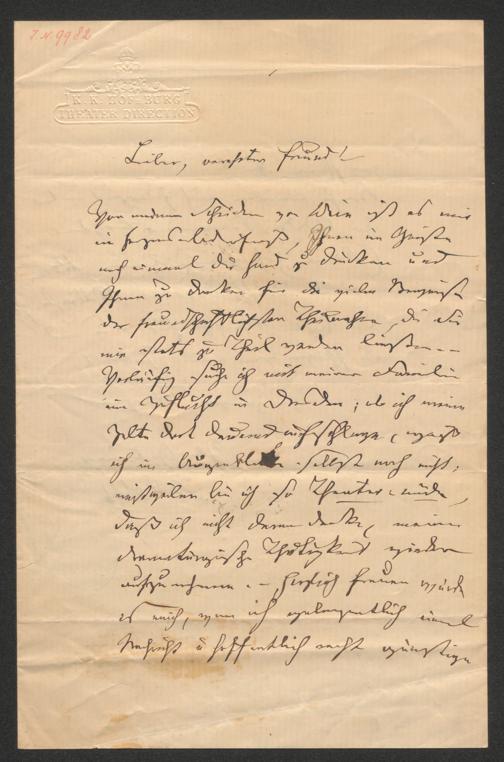 J.N. 9982
K. K. HOF-BURG
THEATER DIRECTION
Lieber, verehrter Freund!
Vor meinem Scheiden von Wien ist es mir
ein Herzensbedürfniß, Ihnen im Geiste
noch einmal die Hand zu drücken und
Ihnen zu danken für die vielen Beweise
der freundschaftlichsten Theilnahme, die Sie
mir stets zu Theil werden ließen. –
Vorläufig suche ich mit meiner Familie
eine Zuflucht in Dresden; ob ich meine
Zelte dort dauernd aufschlage, weiß
ich im Augenblicke selbst noch nicht;
einstweilen bin ich so Theater-müde,
daß ich nicht daran denke, meine
dramaturgische Thätigkeit wieder
aufzunehmen. – Herzlich freuen würde
es mich, wenn ich gelegentlich einmal
Nachricht u hoffentlich recht günstige